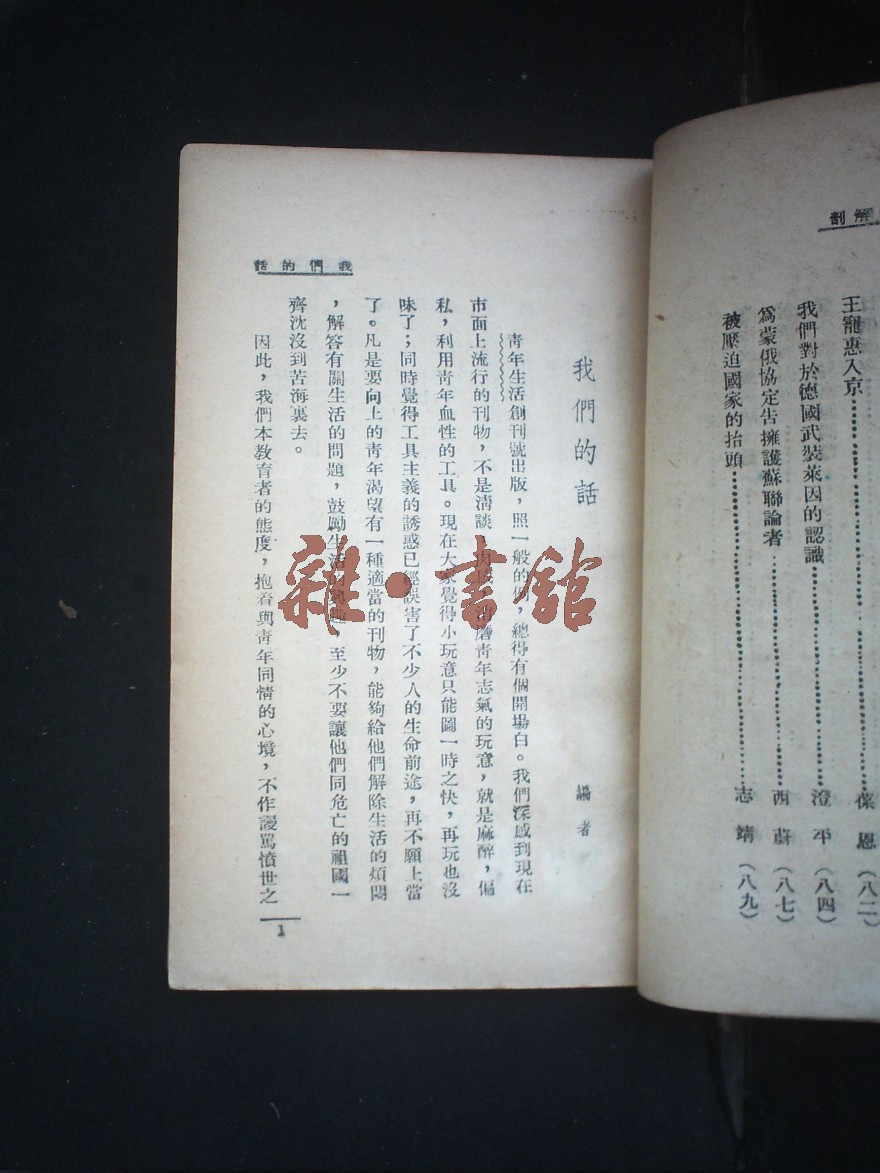 解剖
王寵惠入京……葆恩(八二)
我們對於德國武裝萊因的認識……澄平(八四)
爲蒙俄協定告擁護蘇聯論者……西蔚(八七)
被壓迫國家的抬頭……志靖(八九)
我們的話
我們的話　編者
青年生活創刊號出版，照一般的例，總得有個開場白。我們深感到現在
市面上流行的刊物，不是清談，肉麻，消磨青年志氣的玩意，就是麻醉，偏
私，利用青年血性的工具。現在大家覺得小玩意只能圖一時之快，再玩也沒
味了；同時覺得工具主義的誘惑已經誤害了不少人的生命前途，再不願上當
了。凡是要向上的青年渴望有一種適當的刊物，能夠給他們解除生活的煩悶
，解答有關生活的問題，鼓勵生活的，至少不要讓他們同危亡的祖國一
齊沈沒到苦海裏去。
因此，我們本教育者的態度，抱着與青年同情的心境，不作謾罵憤世之
1
雜·書館